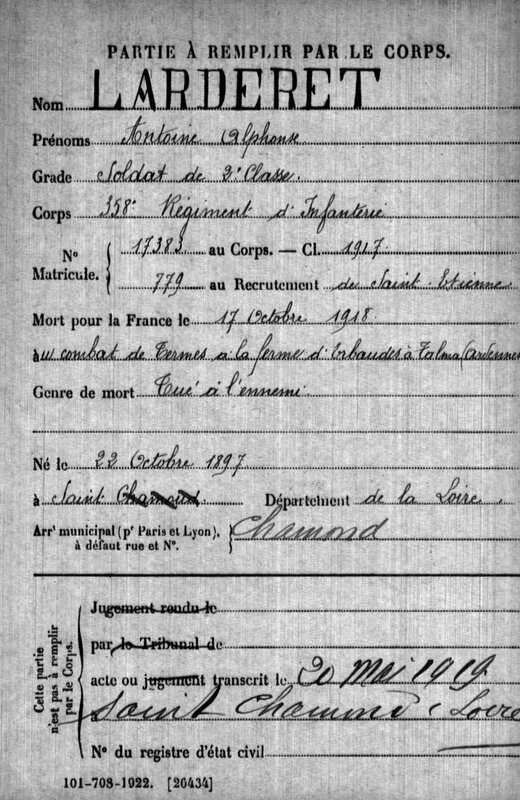 PARTIE À REMPLIR PAR LE CORPS.
Nom LARDERET
Prénoms Antoine Alphonse
Grade Soldat de 2e Classe.
Corps 358e Régiment d'Infanterie
N° Matricule. { 17383 au Corps. — Cl. 1917
779 au Recrutement de Saint-Etienne
Mort pour la France le 17 Octobre 1918
à au combat de Termes à la ferme d'Erbaudes à Talma (Ardennes
Genre de mort Tué à l'ennemi
Né le 22 Octobre 1897
à Saint Chamond Département de la Loire.
Arrt municipal (pr Paris et Lyon), à défaut rue et N°. { Chamond
Cette partie n'est pas à remplir par le Corps.
Jugement rendu le
par le Tribunal de
acte ou jugement transcrit le 20 Mai 1919
Saint Chamond (Loire
N° du registre d'état civil
101-708-1922. [26434]